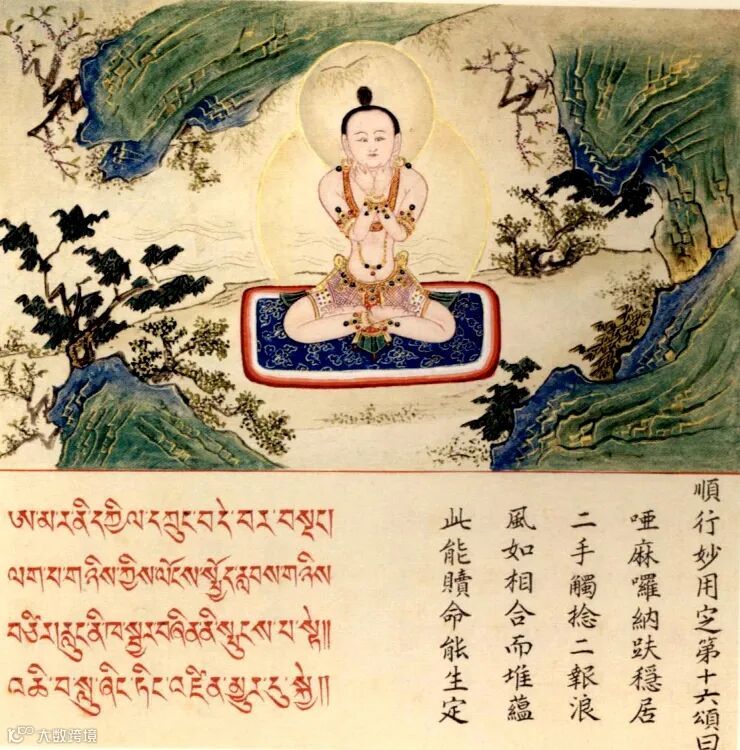 ཨ་མ་ར་ནི་དཀྱིལ་དཀྲུང་བདེ་བར་བསྡད།
ལག་པ་གཉིས་ཀྱིས་ལོངས་སྤྱོད་རླབས་གཉིས
བཙིར། རླུང་ནི་ཁ་སྦྱར་བཞིན་ནི་སྤུངས་པ་སྟེ།།
འཆི་བ་སླུ་ཞིང་ཏིང་འཛིན་མྱུར་དུ་སྐྱེ།།
順行妙用定第十六頌曰
啞麻囉納趺穩居
二手觸捻二報浪
風如相合而堆蘊
此能贖命能生定
大数跨境